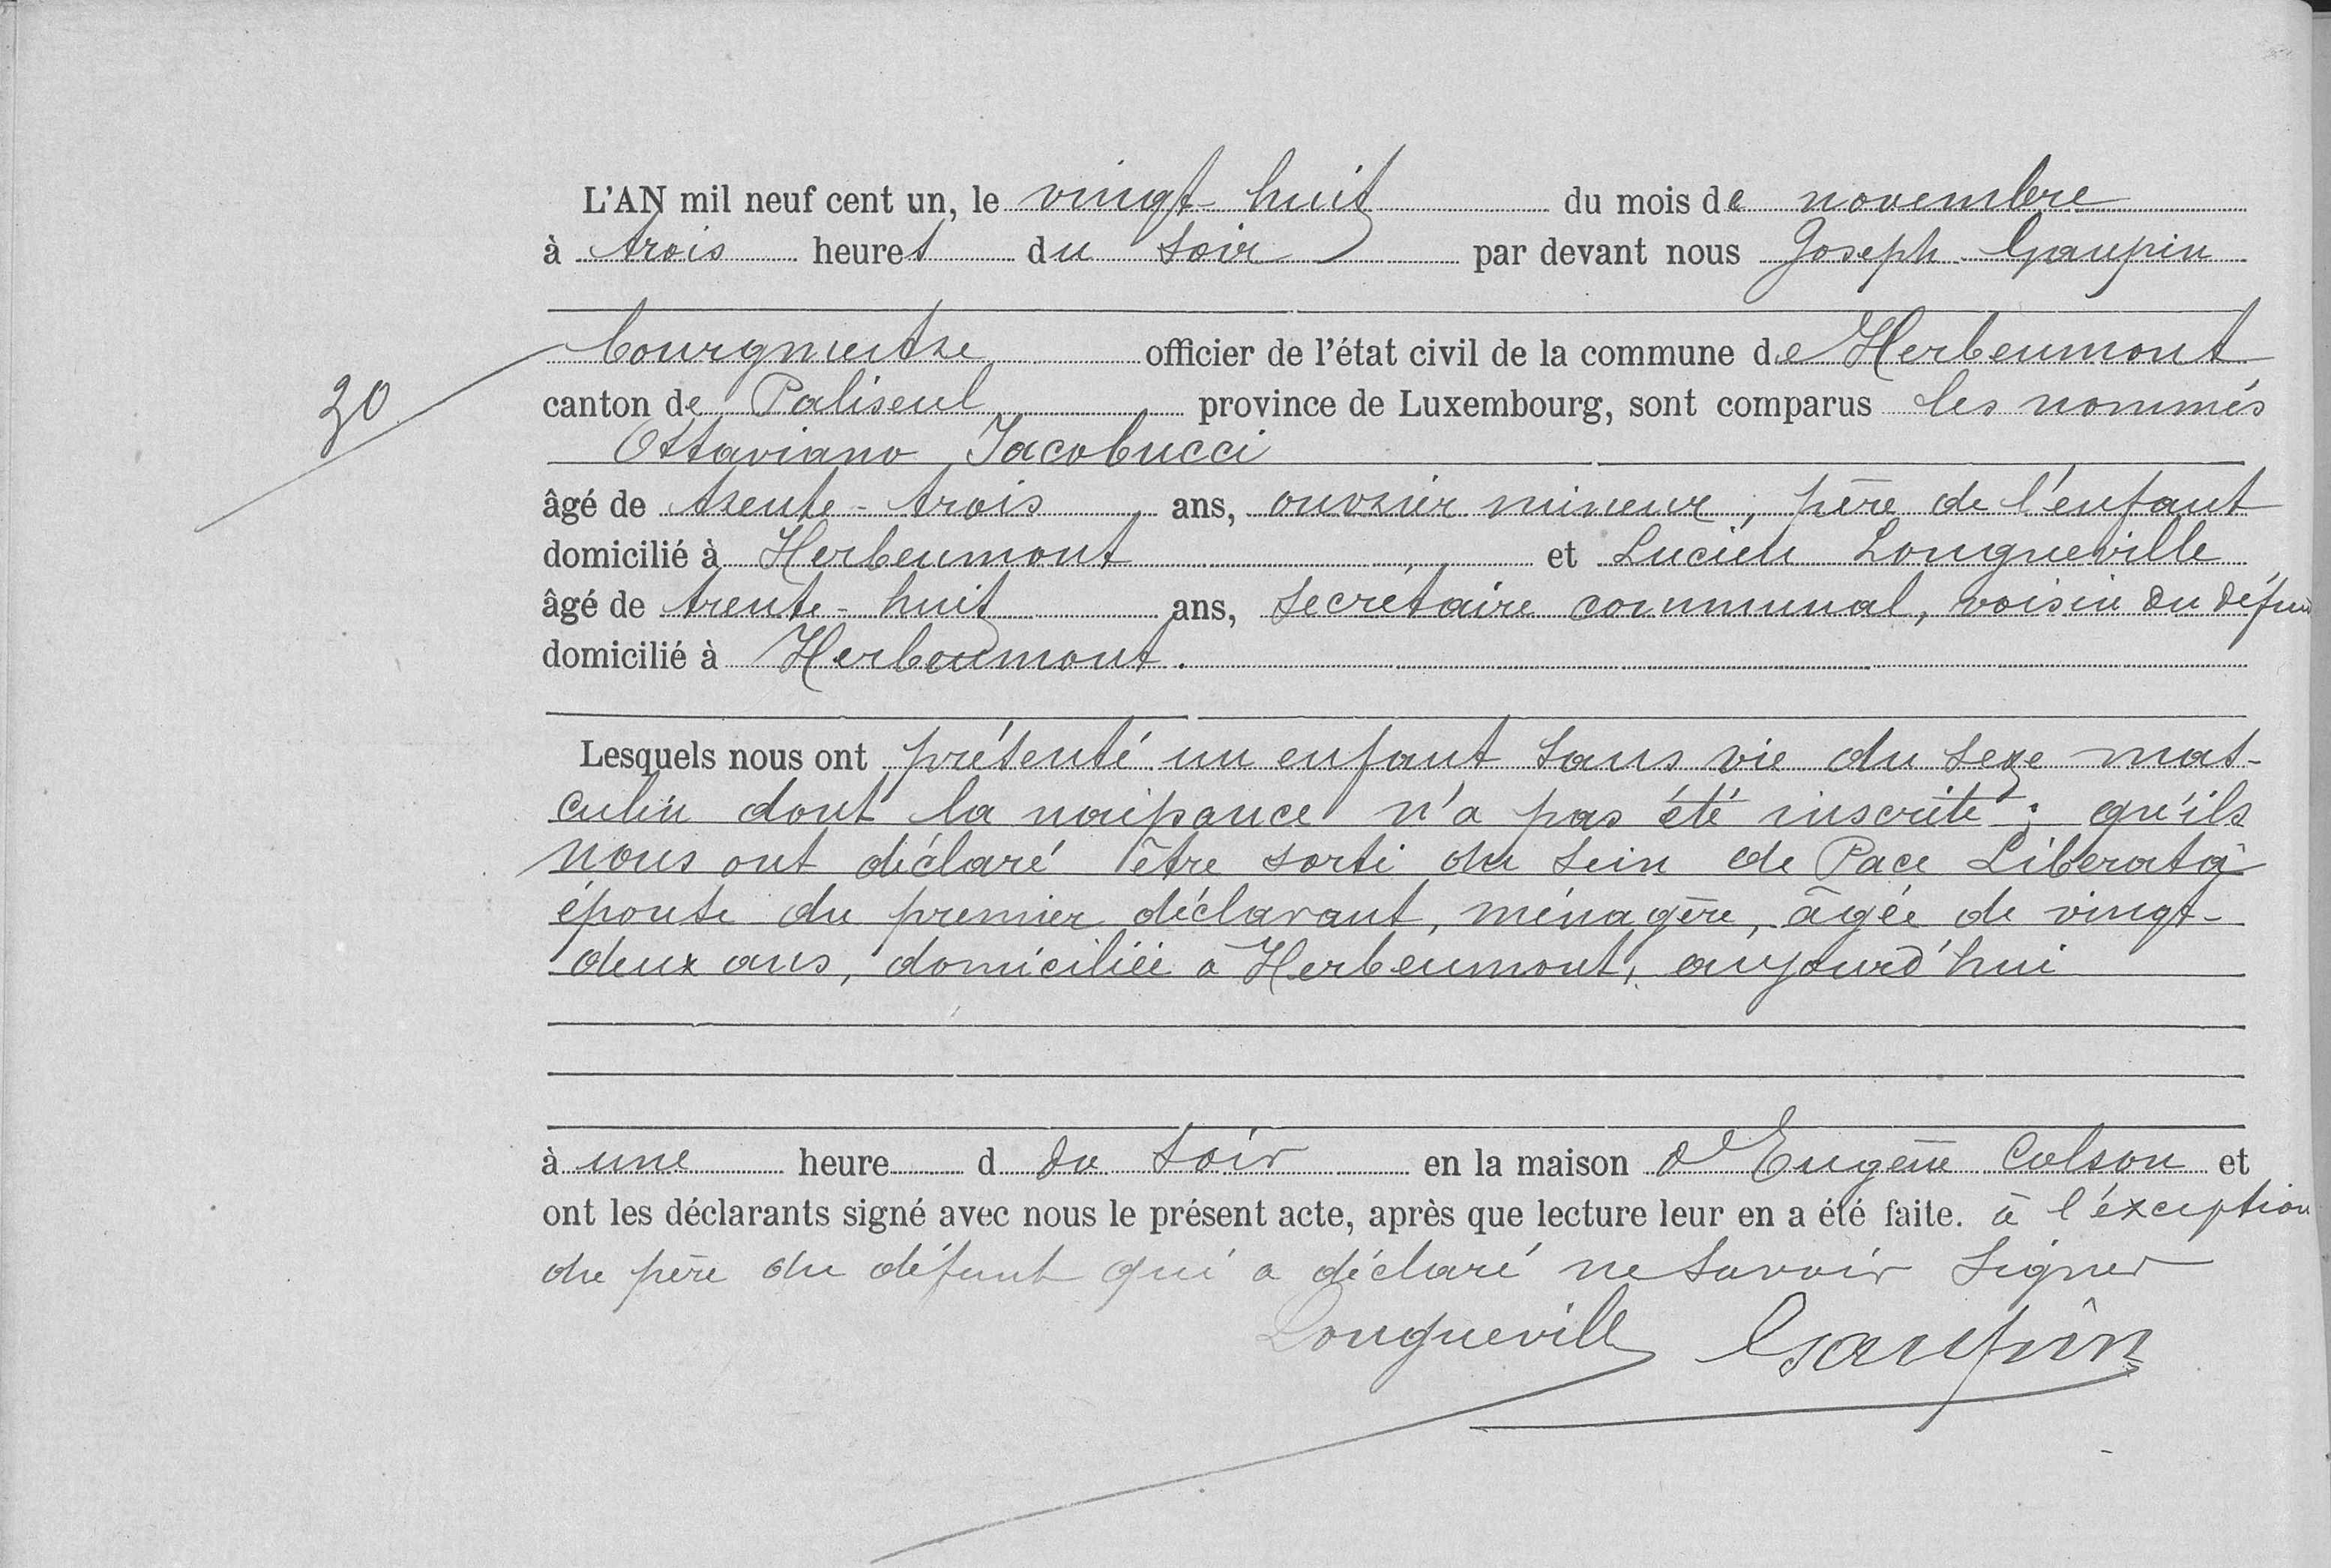 L'AN mil neuf cent un, le vingt-huit du mois de novembre
à trois heures du soir par devant nous Joseph Gaupin
bourgmestre officier de l'état civil de la commune de Herbeumont
30
canton de Paliseul province de Luxembourg, sont comparus les nommés
Ottaviano Jacobucci
âgé de trente-trois ans, ouvrier mineur, père de l'enfant
domicilié à Herbeumont et Lucien Longueville
âgé de trente-huit ans, secrétaire communal, voisin du défunt
domicilié à Herbeumont.
Lesquels nous ont présenté un enfant sans vie du sexe mas-
culin dont la naissance n'a pas été inscrite ; qu'ils
nous ont déclaré être sorti du sein de Pace Liberata
épouse du premier déclarant, ménagère, âgée de vingt-
deux ans, domiciliée à Herbeumont, aujourd'hui
à une heure d du soir en la maison d'Eugène Colson et
ont les déclarants signé avec nous le présent acte, après que lecture leur en a été faite. à l'éxception
du père du défunt qui a déclaré ne savoir signer
Longueville Gaupin